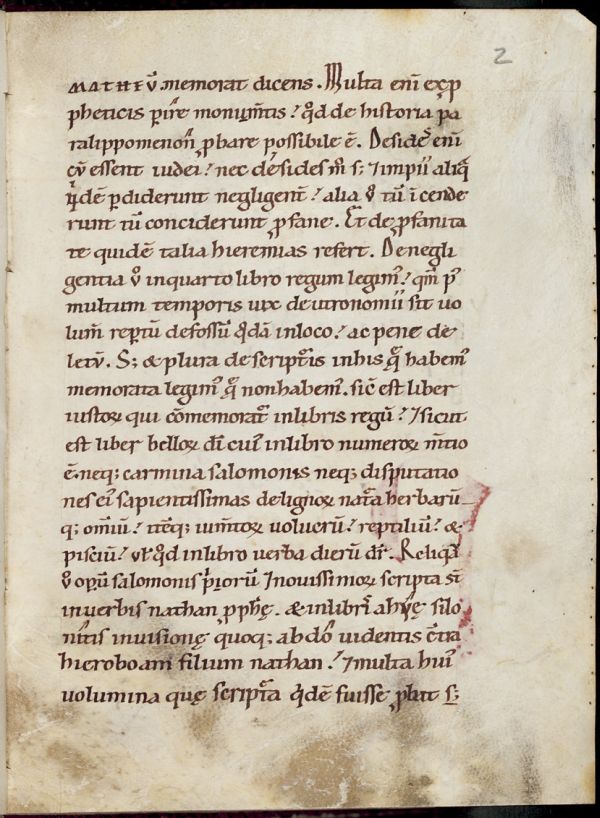 2
MATHEŪ memorat dicens. Multa eni᷒ ex ꝓ
pheticis ꝑire monum̄tis? qd̓ de historia pa
ralippomenon̄ ꝓbare possibile ē. Deside᷒ eni᷒
cū essent iudei? nec desides m̄ s; ⁊ impii aliq̄
q̓dē ꝑdiderunt negligent̄? alia v̊ tū icende
runt tū conciderunt ꝓfane. Et de ꝓfanita
te quidē talia hieremias refert. De negli
gentia v̊ in quarto libro regum legim᷒? qm̄ p᷒
multum temporis uix deutronomii sit uo
lum̄ rep̄tū defossū q̓dā in loco? ac pene de
letū. S; & plura de script̄is in his q̄ habem᷒
memorata legim᷒ q̄ non habem᷒. sic̄ est liber
iustoꝝ qui cōmemorat᷒ in libris regū? ⁊ sicut
est liber belloꝝ dn̄i cui᷒ in libro numeroꝝ m̄tio
ē. neq; carmina salomonis neq; disputatio
nes ei᷒ sapientissimas de lignoꝝ nat̄a herbarū
q; omiū? it̄eq; ium̄toꝝ uolucrū? reptiliū? &
pisciū? ut̄ qd̓ in libro uerba dierū dr̄. Reliqᷓ
v̊ oꝑū salomonis p̓orū ⁊ nouissimoꝝ scripta st̄
in uerbis nathan ꝓphę. & in libri᷒ ahię silo
nitis in uisione quoq; abdo᷒ uidentis c̄tra
hieroboam filium nathan? ⁊ multa hui᷒
uolumina quę script̄a q̓dē fuisse ꝓbat̄ s;